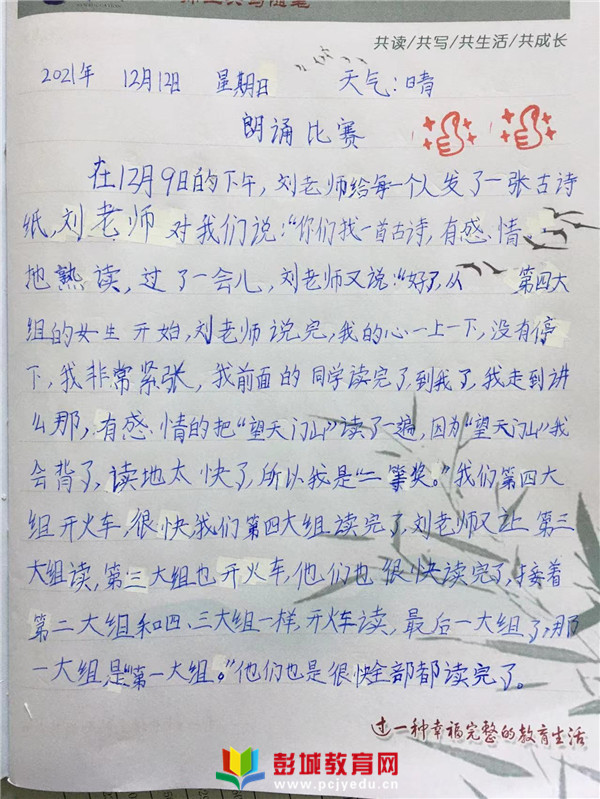 师生共写随笔
共读/共写/共生活/共成长
2021年 12月12日 星期日 天气:晴
朗诵比赛
在12月9日的下午,刘老师给每一个人发了一张古诗
纸,刘老师对我们说:“你们找一首古诗,有感情
地熟读,过了一会儿,刘老师又说:“好了,从 第四大
组的女生开始,刘老师说完,我的心一上一下,没有停
下,我非常紧张,我前面的同学读完了,到我了,我走到讲
么那,有感情的把“望天门山”读了一遍,因为“望天门山”我
会背了,读地太快了,所以我是“二等奖。”我们第四大
组开火车,很快,我们第四大组读完了,刘老师又让第三
大组读,第三大组也开火车,他们也很快读完了,接着
第二大组和四、三大组一样,开火车读,最后一大组了,那
一大组,是“第一大组。”他们也是很快全部都读完了。
过一种幸福完整的教育生活
彭城教育网
www.pcjyedu.cn